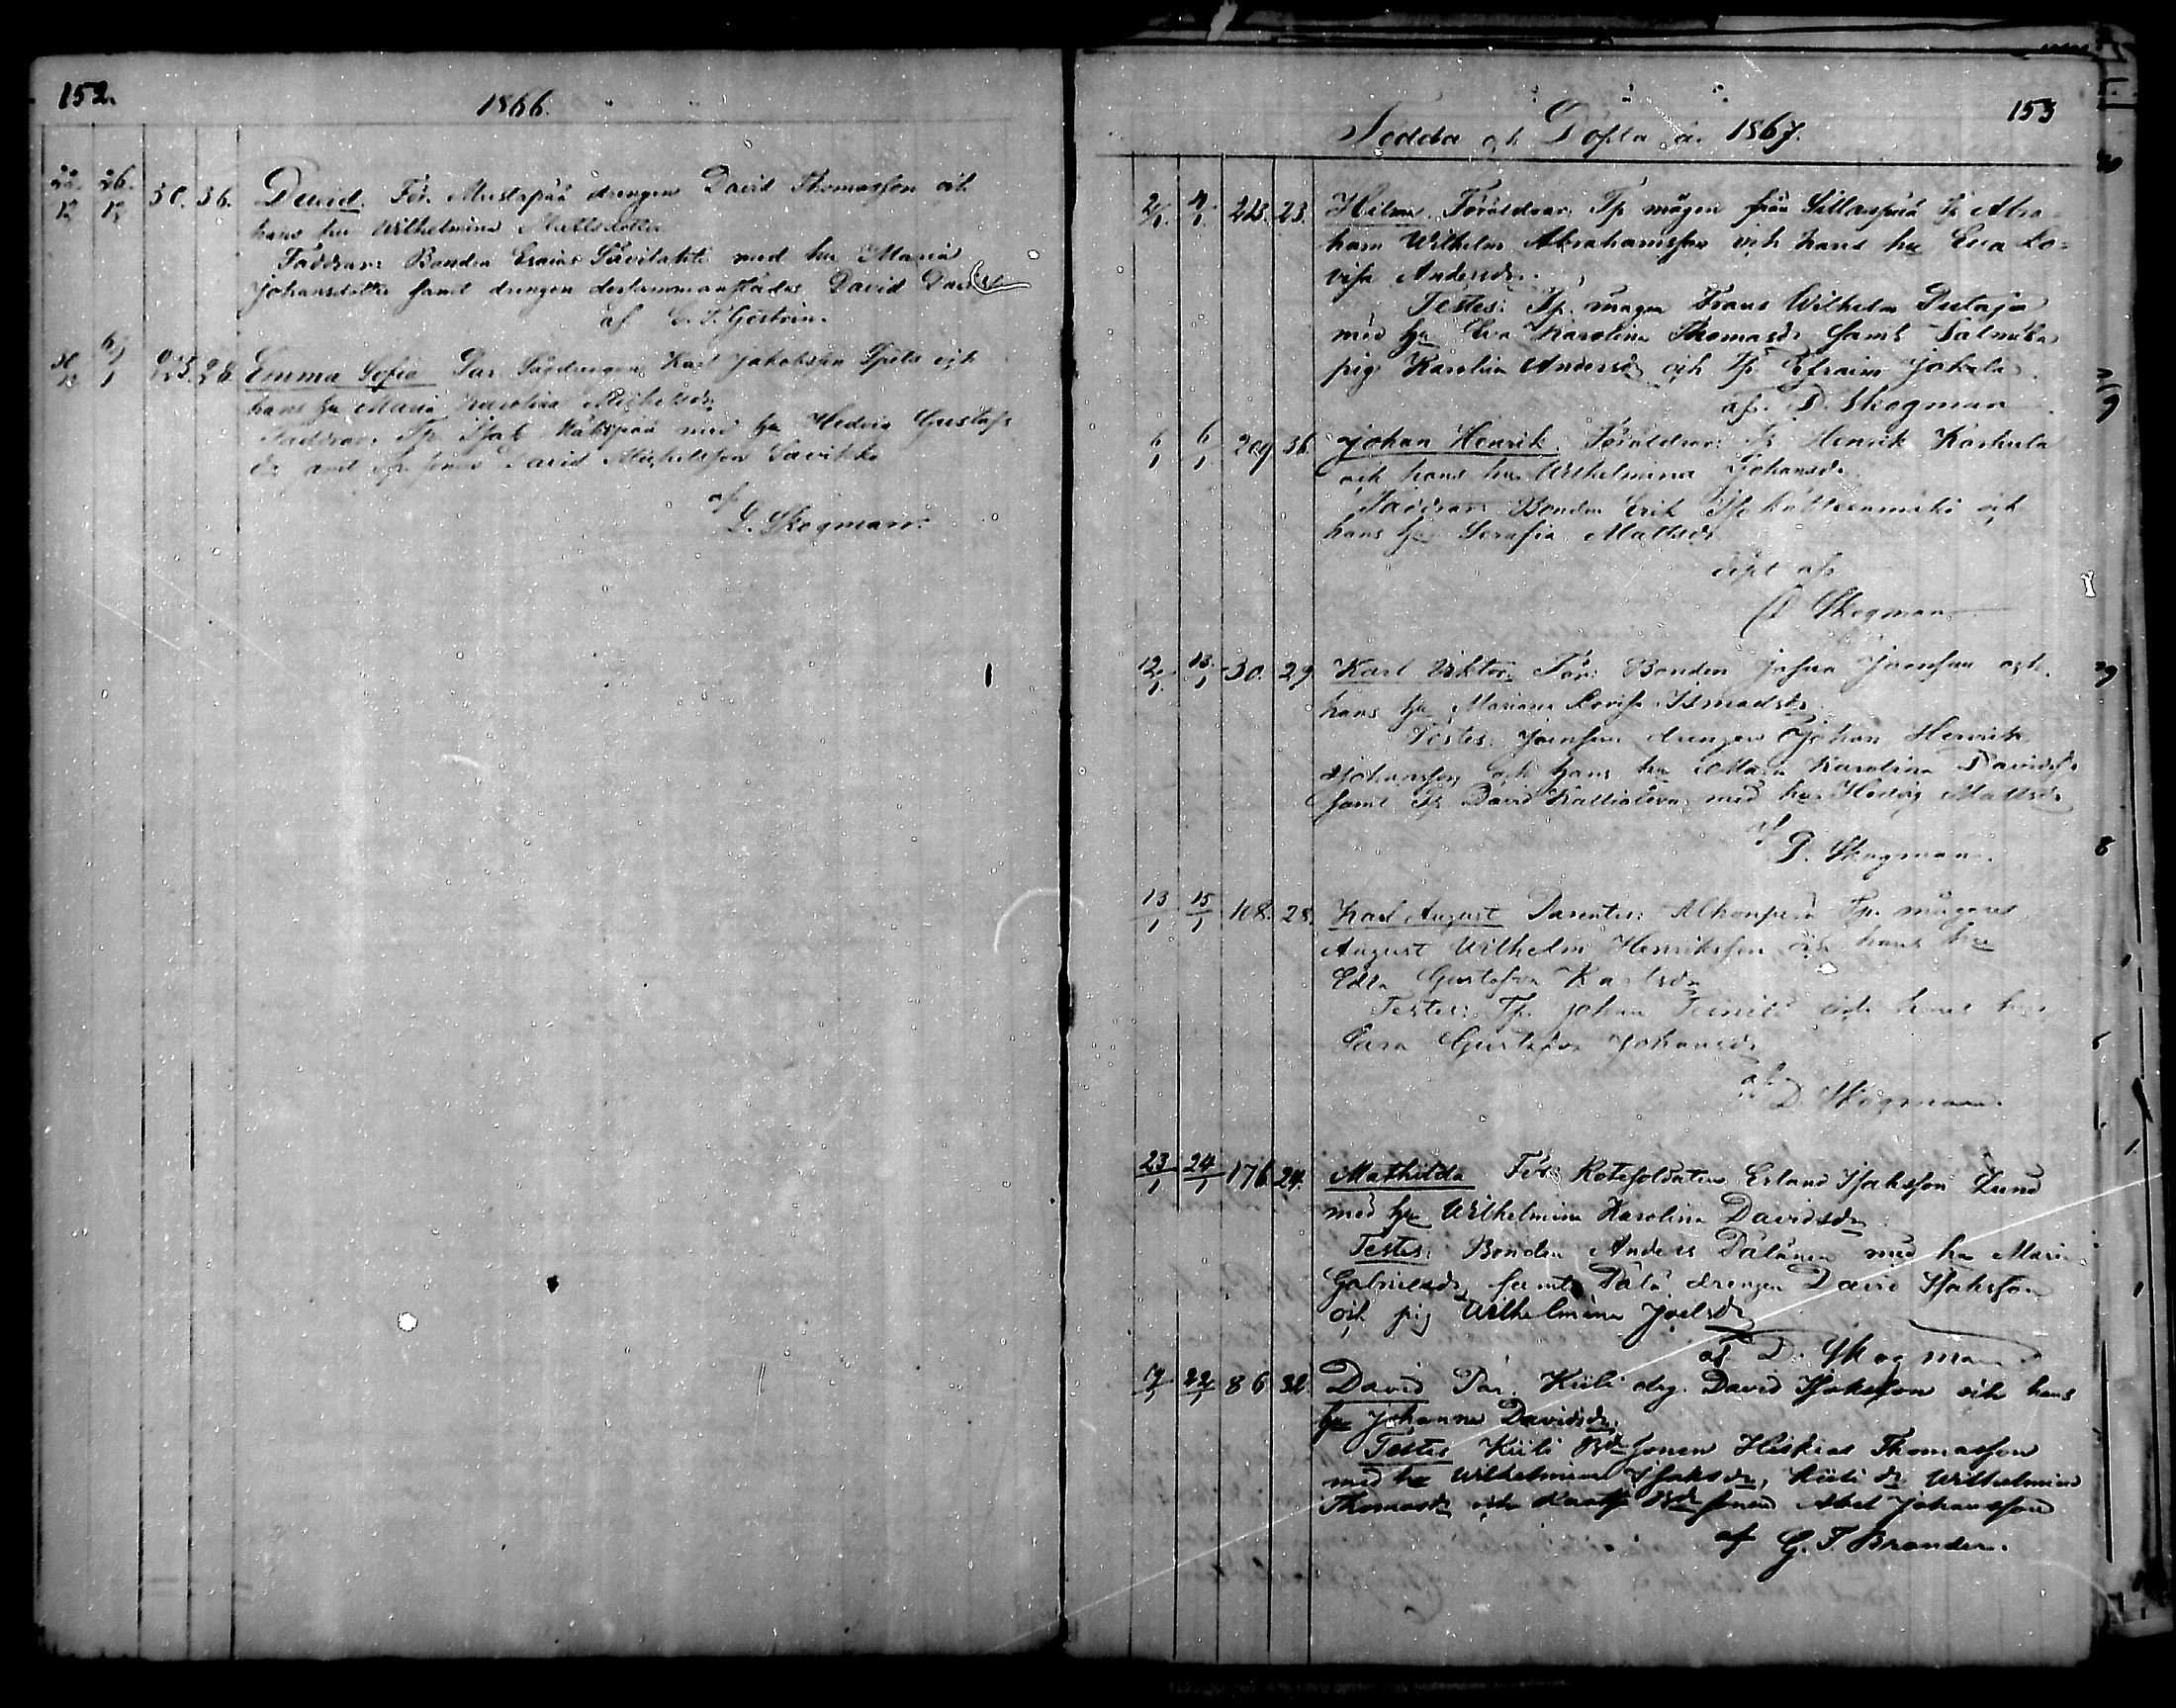 152.
1866.
22/12 26/12 30. 36. David. För. Mustapää drengen David Thomasson och
hans hu Wilhelmina Mattsdotter
Faddrar: Bonden Esaias Savilahti med hu Maria
Johansdotter samt drengen dersammastädes David Davidss
af
30/12 6/1 28. Emma Sofia Par. Karl Jakobsson och
hans hu Maria Karolina Michelsdr
Faddrar: Tp. Isak med hu Hedvig Gustafs
dr David Michelsson Savikko
af
D. Skogman.
153
Födda och Döpta år 1867.
2/1 4/1 213. 23. Hilma. Föräldrar: Tp. mågen från Sillanpää Abra-
ham Wilhelm Abrahamsson och hans hu Eva Lo-
visa Andersdr.
Testes: Tp. mågen Frans Wilhelm
med hu Eva Karolina Thomasdr samt
pig Karolina Andersdr och Tp. Efraim Jokela
af D. Skogman
6/1 6/1 209 36. Johan Henrik. Föräldrar: Henrik Karhula
och hans hu Wilhelmina Johansdr
Faddrar Bonden Erik och
hans hu Serafia Mattsdr
döpt af
D Skogman
12/1 13/1 30. 29 Karl Viktor. För: Bonden Josua Joensuu och
hans hu Mariana Lovisa
Testes: Joensuu drengen Johan Henrik
Johansson och hans hu Maria Karolina Davidsdr
samt Tp David med hu Hedvig Mattsdr
af
D. Skogman.
13/1 15/1 108. 28. Karl August Parentes: Tp. mågen
August Wilhelm Henriksson och hans hu
Edla Gustafva Karlsdr
Testes: Tp. Johan och hans hu
Sara Gustafva Johansdr
af
D. Skogman.
23/1 24/1 176 24. Mathilda För: Rotesoldaten Erland Isaksson Lund
med hu Wilhelmina Karolina Davidsdr
Testes: Bonden Anders Pälänen med hu Maria
Gabrielsdr samt Pälä drengen David Isaksson
och pig Wilhelmina Joelsdr
af D. Skogman
19/1 22/1 86 32 David Par. Kiili drg. David Isaksson och hans
hu Johanna Davidsdr.
Testes Kiili Bd sonen Hiskias Thomasson
med hu Wilhelmina Isaksdr, Kiili dr Wilhelmina
Thomasdr och Bd sonen Abel Johansson
af G. T. Brander.